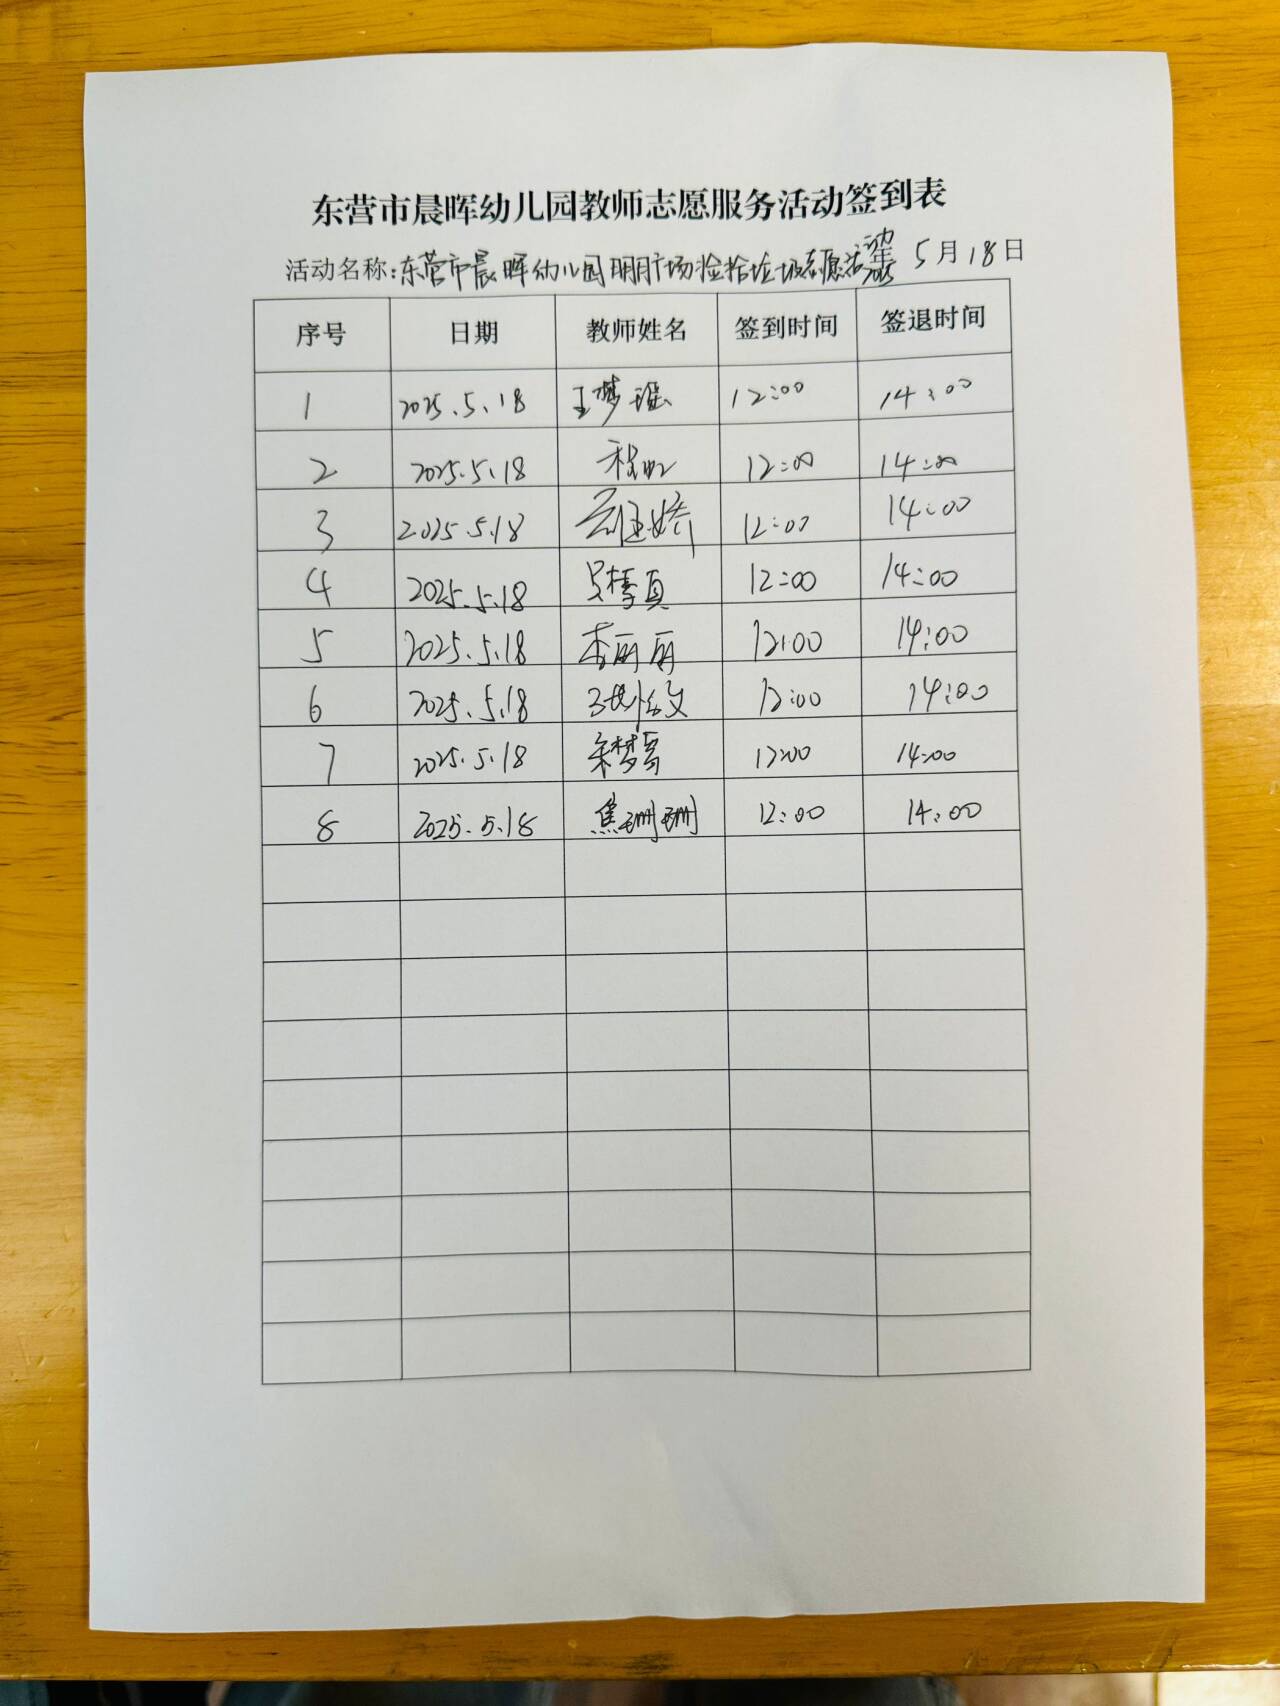 东营市晨晖幼儿园教师志愿服务活动签到表
活动名称:东营市晨晖幼儿园明月广场捡拾垃圾志愿活动 2025年 5月18日
序号 日期 教师姓名 签到时间 签退时间
1 2025.5.18 王梦瑶 12:00 14:00
2 2025.5.18 12:00 14:00
3 2025.5.18 12:00 14:00
4 2025.5.18 12:00 14:00
5 2025.5.18 李丽丽 12:00 14:00
6 2025.5.18 12:00 14:00
7 2025.5.18 12:00 14:00
8 2025.5.18 焦珊珊 12:00 14:00